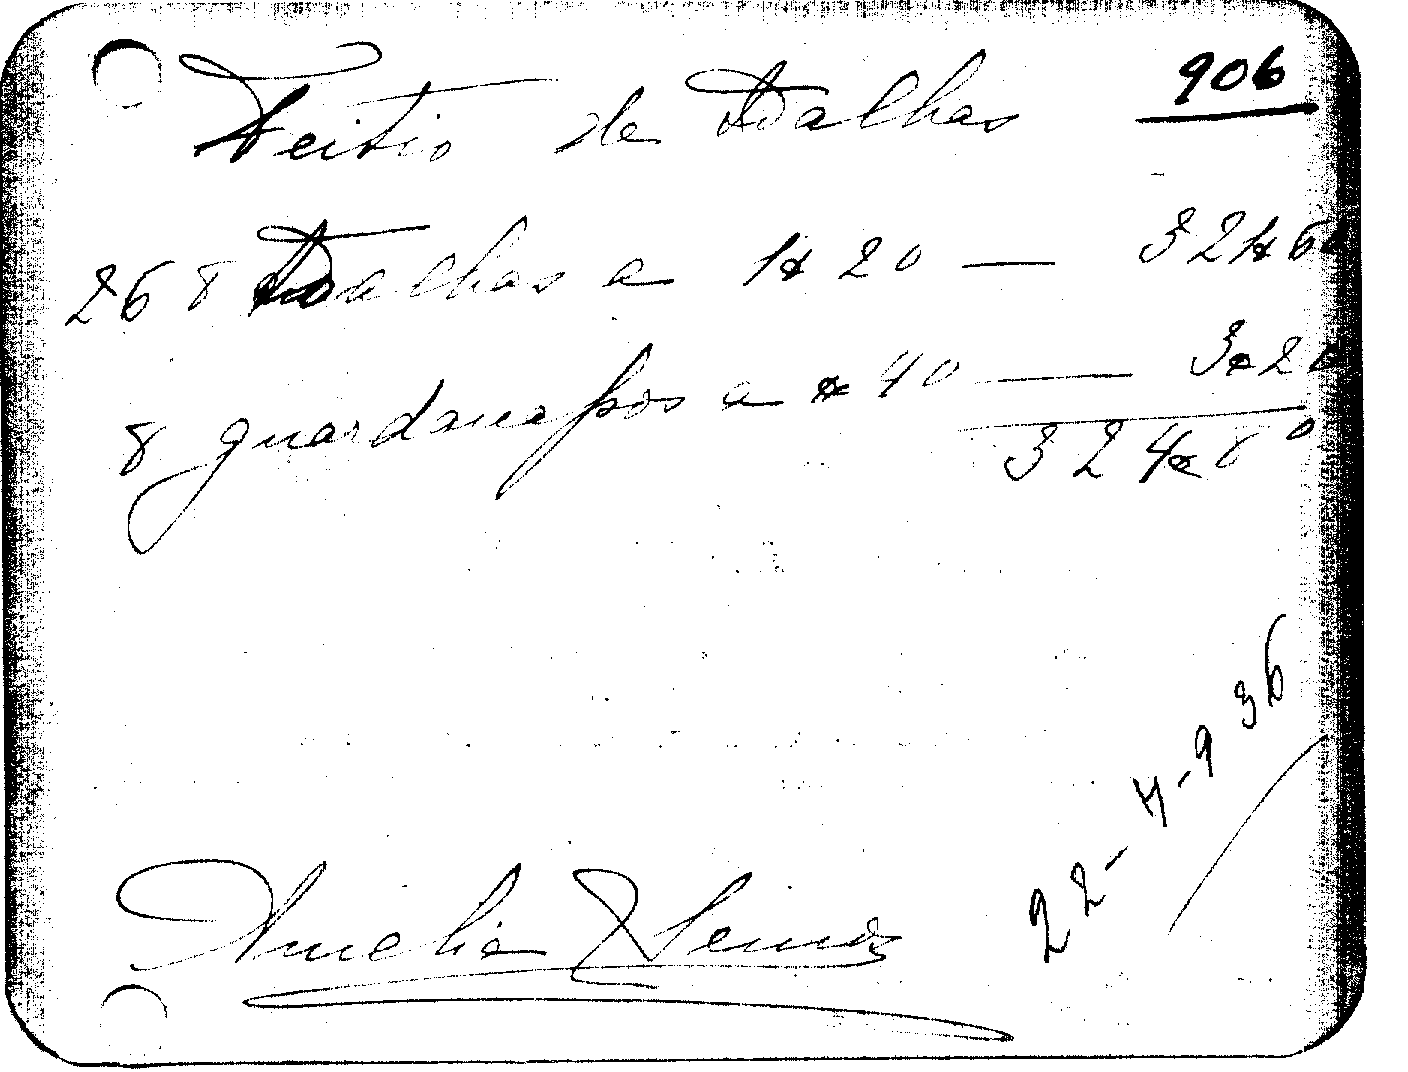 906
Feitio de Toalhas
268 Toalhas a 1$20 — 321$60
8 guardanapos a $40 — 3$20
324$80
22-4-936
Amelia Lemos